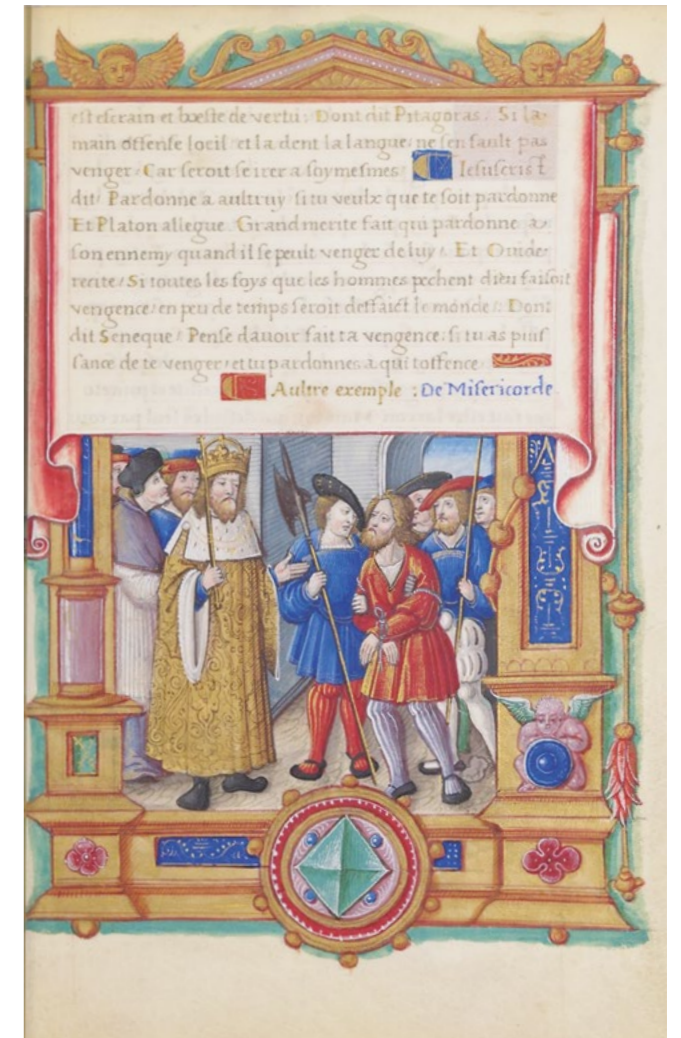 est escrain et boeste de vertu. Dont dit Pitagoras. Si la
main offense loeil et la dent la langue, ne sen fault pas
venger. Car seroit se irer a soymesmes. Iesuscrist
dit, Pardonne a aultruy si tu veulx que te soit pardonne
Et Platon allegue. Grand merite fait qui pardonne a
son ennemy quand il se peult venger de luy. Et Ouide
recite, Si toutes les foys que les hommes pechent dieu faisoit
vengence, en peu de temps seroit deffaict le monde. Dont
dit Seneque, Pense dauoir fait ta vengence, si tu as puis
sance de te venger, et tu pardonnes a qui toffence
Aultre exemple : De Misericorde